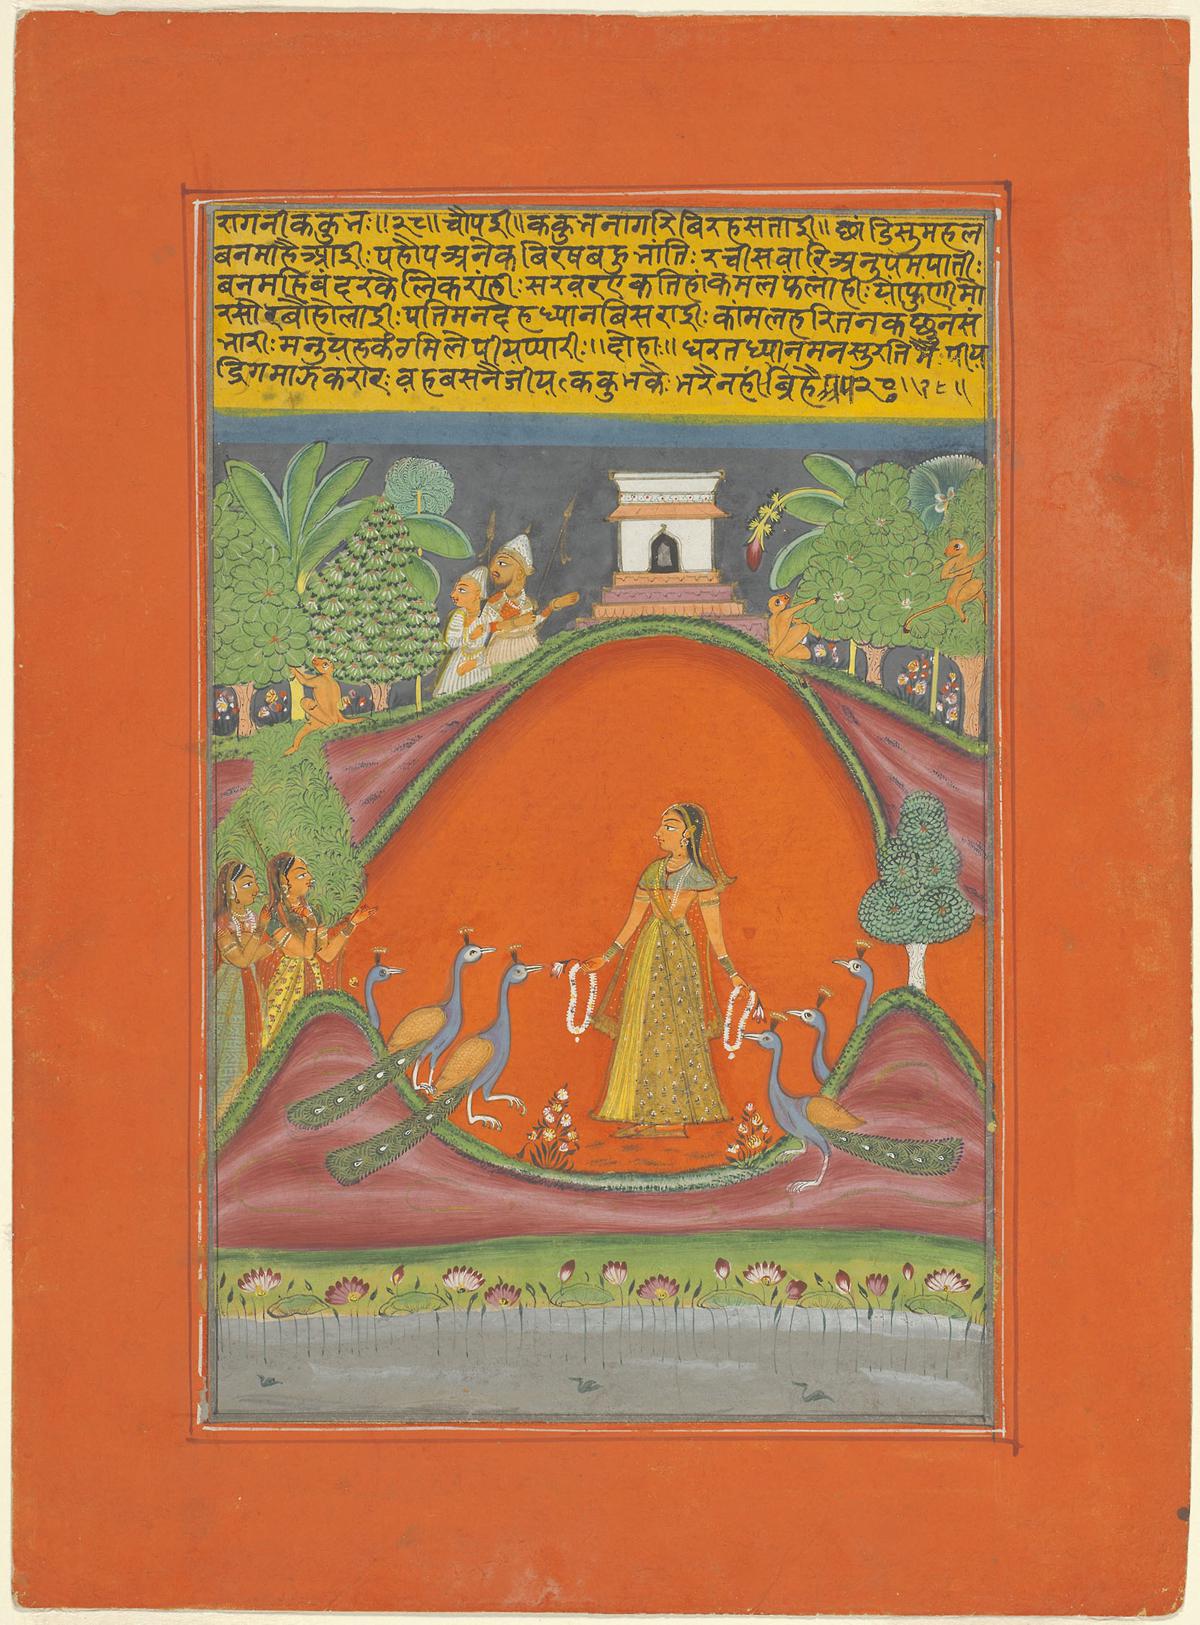 रागनीककुभः॥२८॥चौपई॥ककुभनागरिबिरहसताई॥छांडिसुमहल
बनमाहैआई:पहौपअनेकबिरषबहुभांति:रचीसवारिअनुपमपाती:
बनमहिबंदरकेलिकरांही:सरवरएकतिहांकमलफलाही:
पतिमनदेहध्यानबिसराई:कांमलहरितनक
भारी:मनुपहकंवमिलेपीयप्यारी:॥दोहा:॥धरतध्यानमनसुरतिमै:पीय
ढिगमाऊकरार:वहबसनैजीय:ककुभकै:भरैनहीं